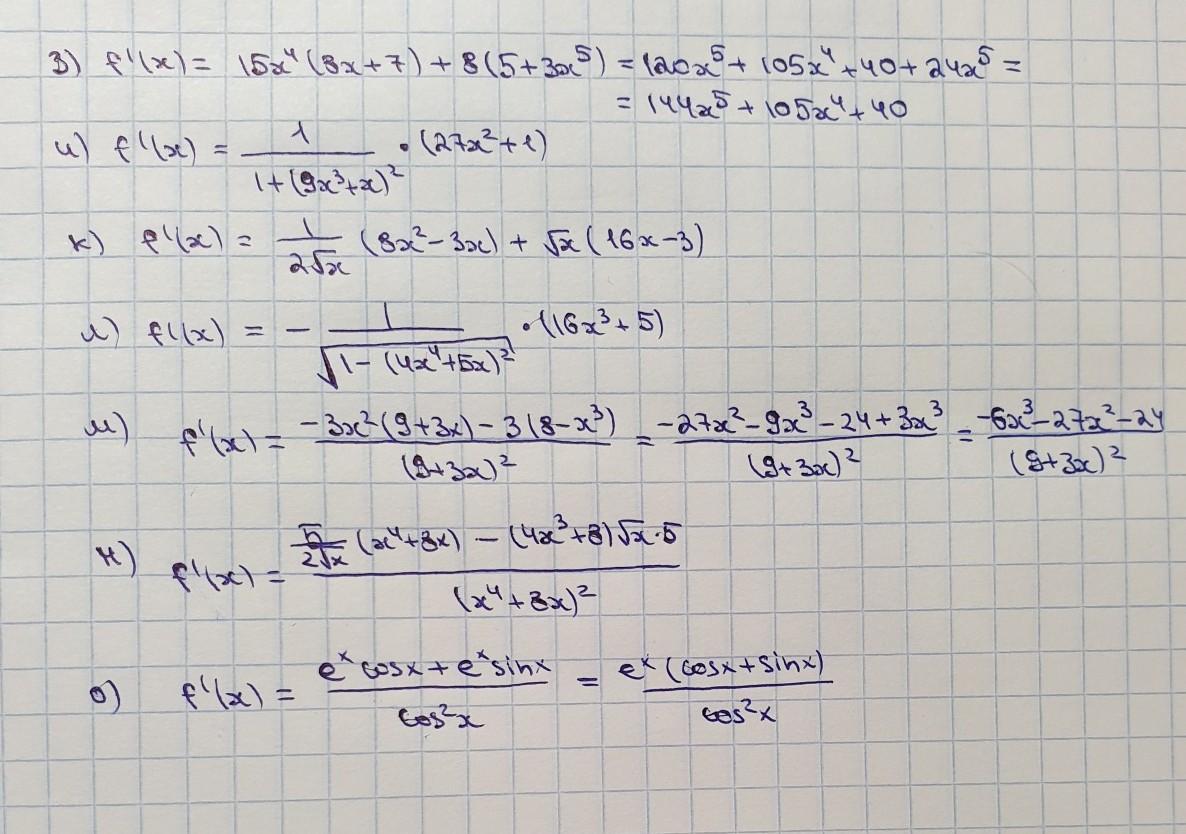 з) f'(x) = 15x⁴(8x+7) + 8(5+3x⁵) = 120x⁵ + 105x⁴ + 40 + 24x⁵ =
= 144x⁵ + 105x⁴ + 40
и) f'(x) = 1/(1+(9x³+x)²) · (27x²+1)
к) f'(x) = 1/(2√x) (8x²-3x) + √x(16x-3)
л) f'(x) = - 1/√(1-(4x⁴+5x)²) · (16x³+5)
м) f'(x) = (-3x²(9+3x) - 3(8-x³))/(9+3x)² = (-27x²-9x³-24+3x³)/(9+3x)² = (-6x³-27x²-24)/(9+3x)²
н) f'(x) = (5/(2√x) (x⁴+8x) - (4x³+8)√x·5)/(x⁴+8x)²
о) f'(x) = (eˣcosx + eˣsinx)/cos²x = eˣ(cosx+sinx)/cos²x